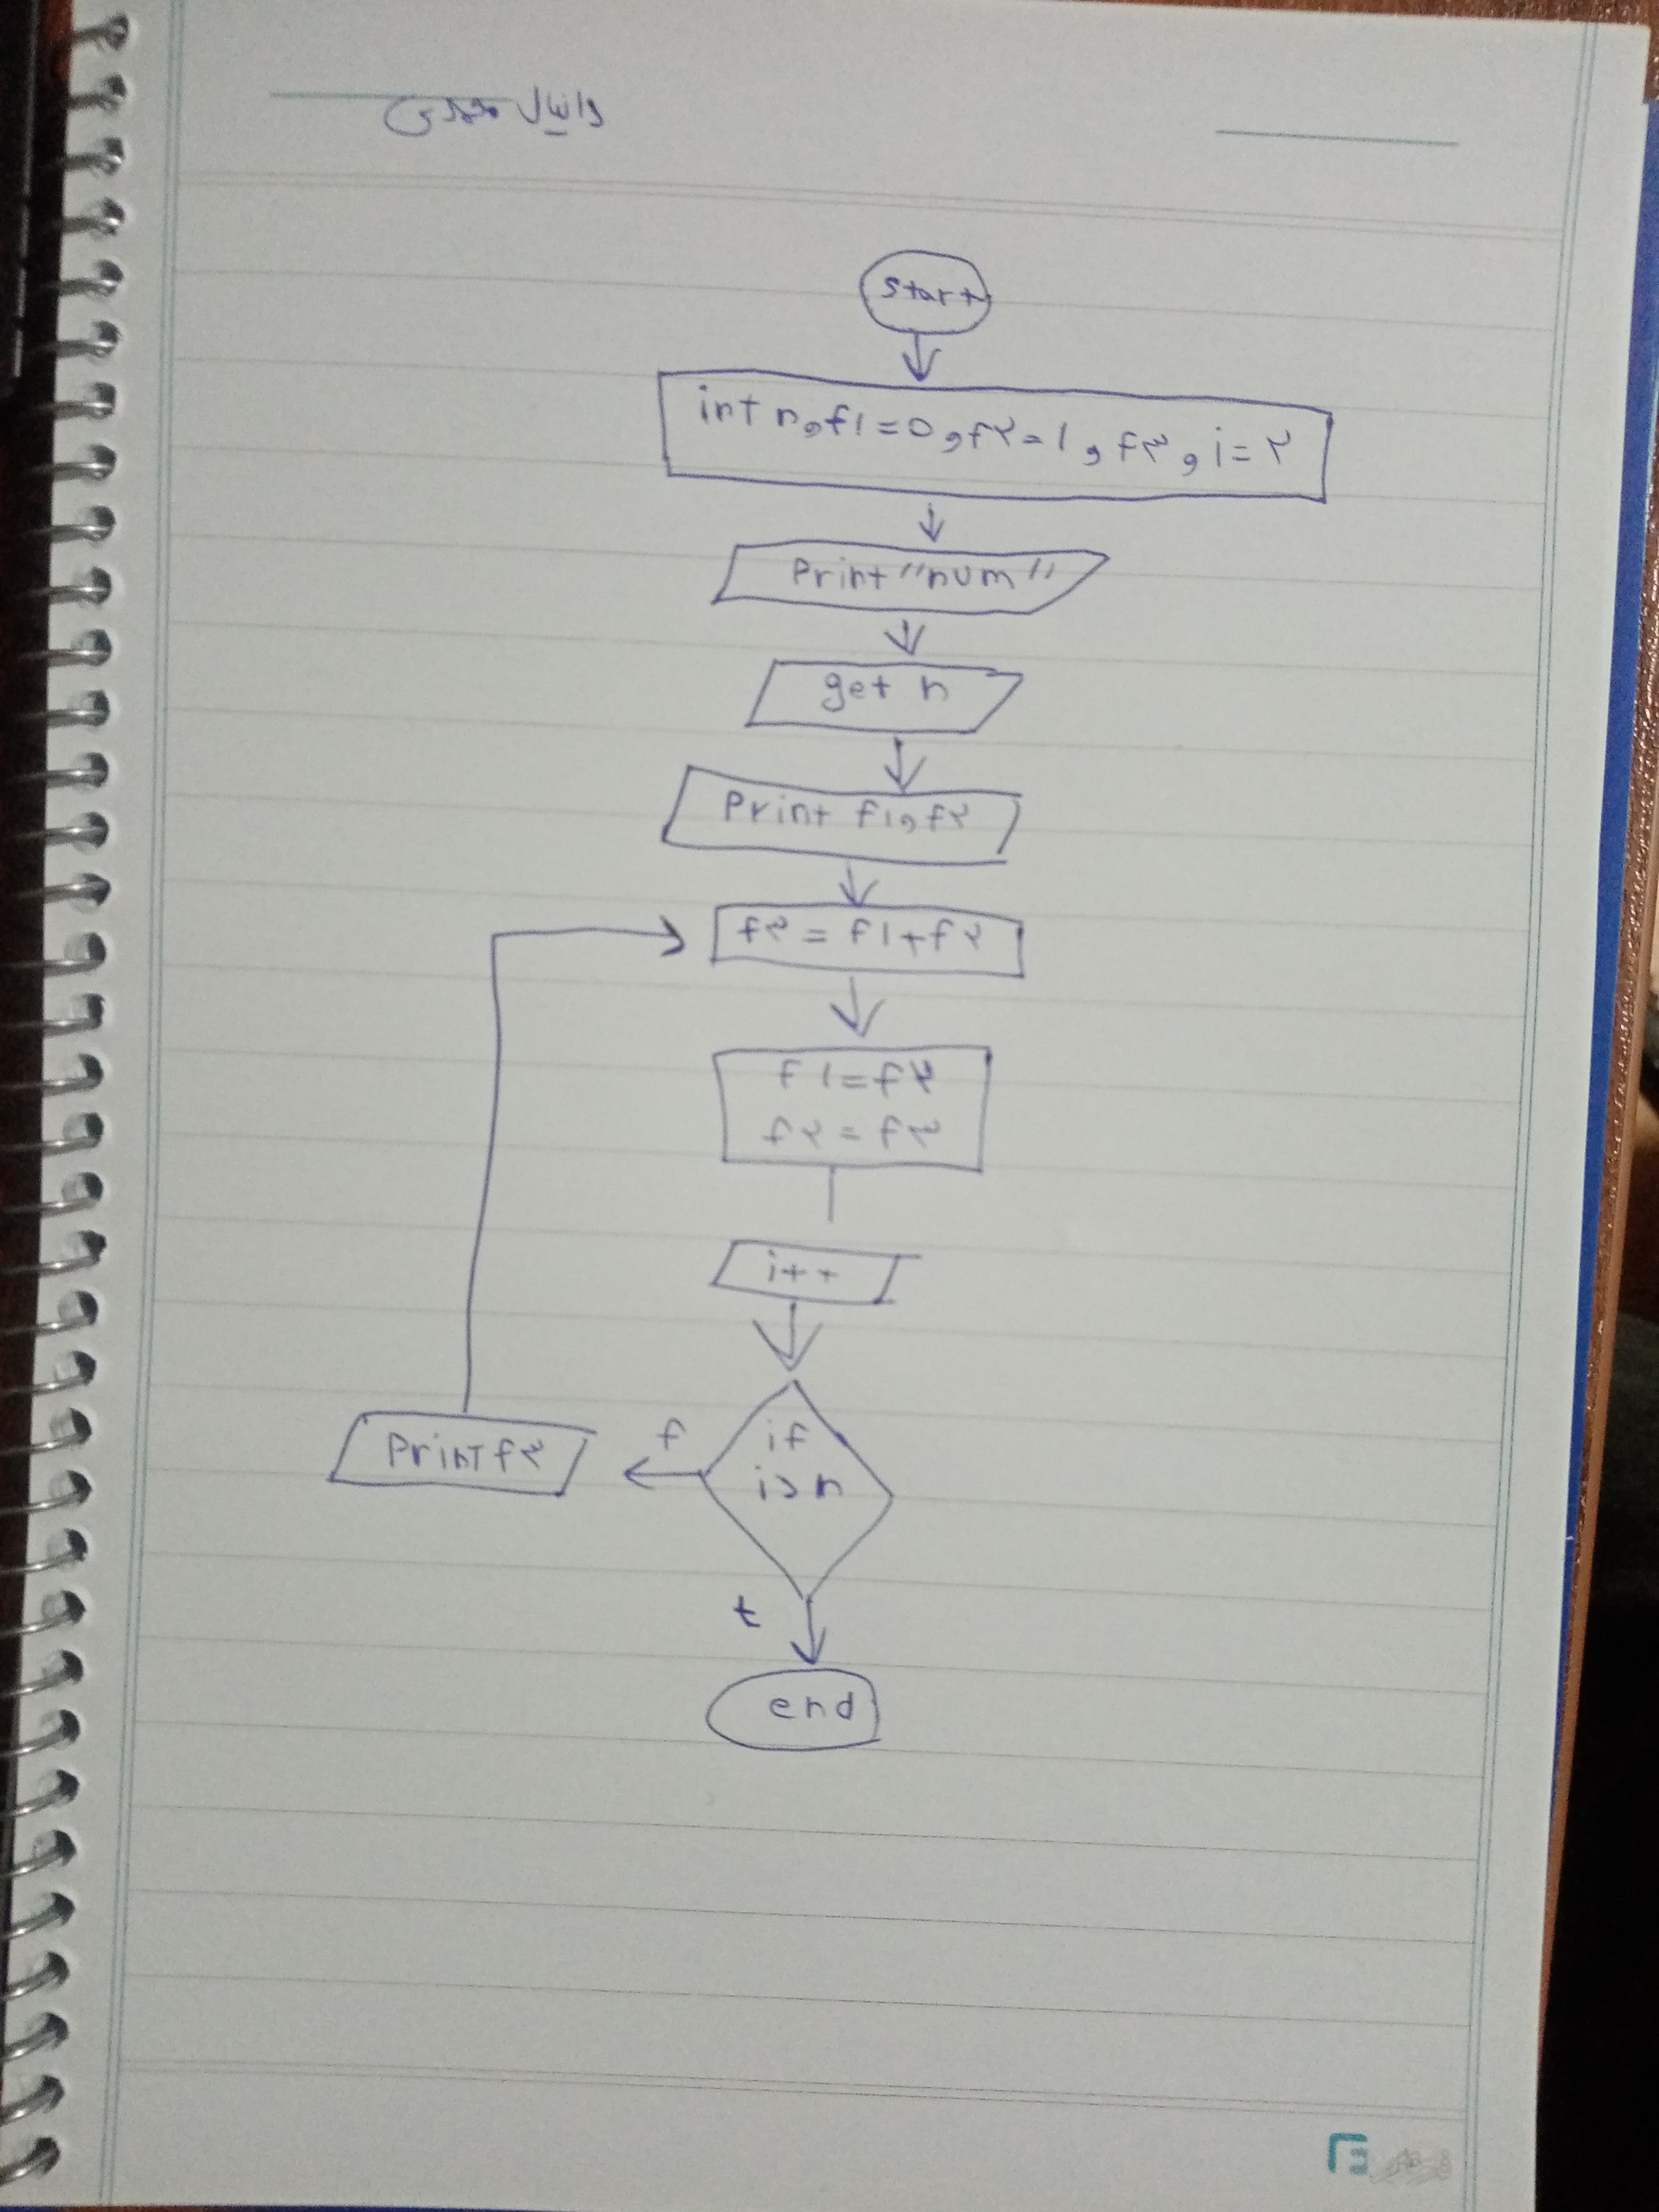 دانیال مقدم
start
int n,f1=0,f۲=1,f۳,i=۲
Print "num"
get n
Print f1,f۲
f۳=f1+f۲
f1=f۲
f۲=f۳
i++
if
i>n
f
Print f۳
t
end